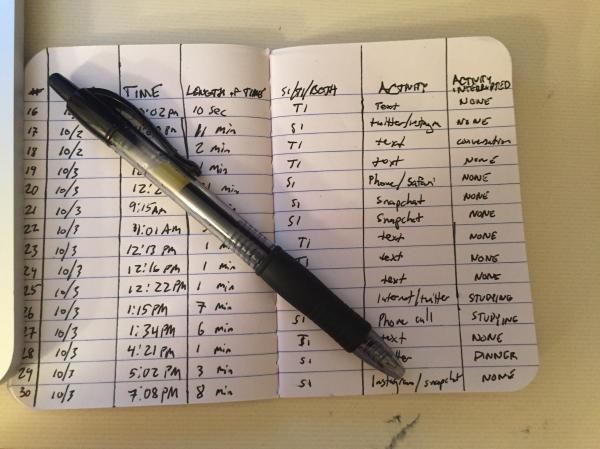 # TIME LENGTH of TIME SI/TI/BOTH ACTIVITY ACTIVITY INTERRUPTED
16 10 sec TI Text NONE
17 10/2 min SI NONE
18 10/2 2 min TI text conversation
19 10/3 min TI text NONE
20 10/3 min SI Phone/Safari NONE
21 10/3 9:15AM SI snapchat NONE
22 10/3 SI Snapchat NONE
23 10/3 12:13 PM 1 min TI text NONE
24 10/3 12:16 PM 1 min TI text NONE
25 10/3 12:22PM 1 min text NONE
26 10/3 1:15PM 7 min Internet/twitter STUDYING
27 10/3 1:34PM 6 min SI Phone call STUDYING
28 10/3 4:21PM 1 min text NONE
29 10/3 5:02 PM 3 min SI DINNER
30 10/3 7:08PM 8 min SI Instagram/snapchat NONE